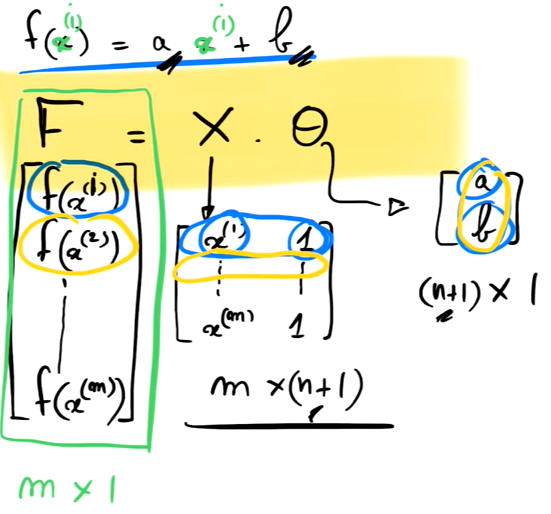 f(x^(i)) = a x^(i) + b
F = X . Θ
[f(x^(i)) f(x^(2)) ⋮ f(x^(m))]
[x^(1) 1 ⋮ ⋮ x^(m) 1]
[a b]
(n+1) × 1
m × (n+1)
m × 1